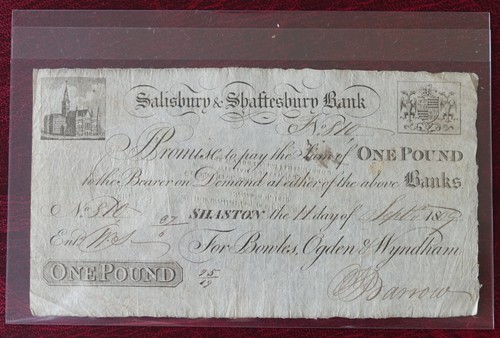 Salisbury & Shaftesbury Bank
No. 810
I Promise to pay the Sum of ONE POUND
to the Bearer on Demand at either of the above Banks
No. 810 SHASTON the 11 day of Sept. 18
Entd.
For Bowles, Ogden & Wyndham
ONE POUND